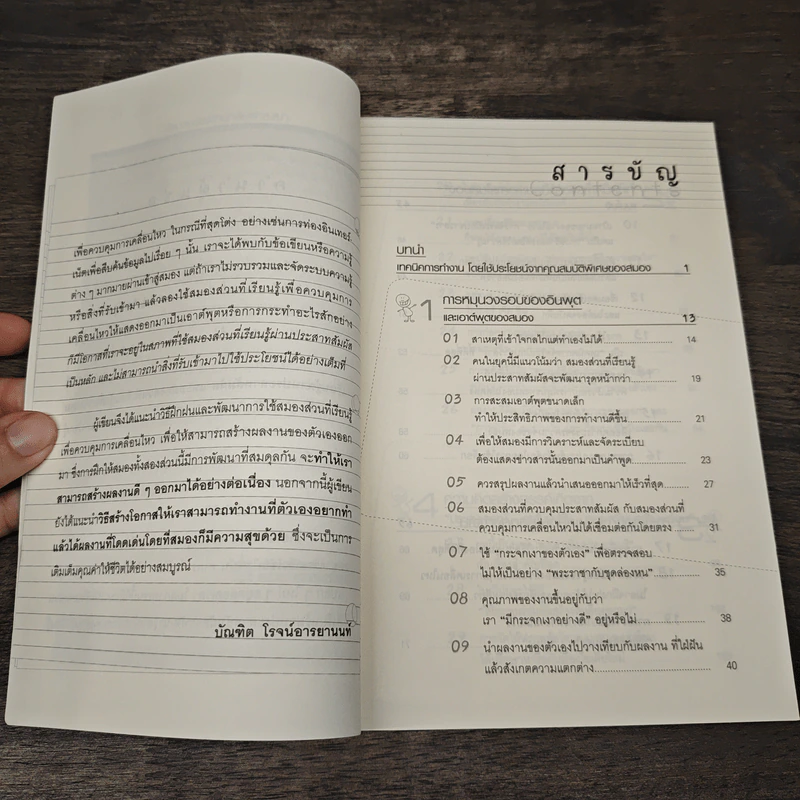 เพื่อควบคุมการเคลื่อนไหว ในกรณีที่สุดโต่ง อย่างเช่นการท่องอินเทอร์-
เน็ตเพื่อสืบค้นข้อมูลไปเรื่อย ๆ นั้น เราจะได้พบกับข้อเขียนหรือความรู้
ต่าง ๆ มากมายผ่านเข้าสู่สมอง แต่ถ้าเราไม่รวบรวมและจัดระบบความรู้
หรือสิ่งที่รับเข้ามา แล้วลองใช้สมองส่วนที่เรียนรู้เพื่อควบคุมการ
เคลื่อนไหวให้แสดงออกมาเป็นเอาต์พุตหรือการกระทำอะไรสักอย่าง
ก็มีโอกาสที่เราจะอยู่ในสภาพที่ใช้สมองส่วนที่เรียนรู้ผ่านประสาทสัมผัส
เป็นหลัก และไม่สามารถนำสิ่งที่รับเข้ามาไปใช้ประโยชน์ได้อย่างเต็มที่
ผู้เขียนจึงได้แนะนำวิธีฝึกฝนและพัฒนาการใช้สมองส่วนที่เรียนรู้
เพื่อควบคุมการเคลื่อนไหว เพื่อให้สามารถสร้างผลงานของตัวเองออก
มา ซึ่งการฝึกให้สมองทั้งสองส่วนนี้มีการพัฒนาที่สมดุลกัน จะทำให้เรา
สามารถสร้างผลงานดี ๆ ออกมาได้อย่างต่อเนื่อง นอกจากนี้ผู้เขียน
ยังได้แนะนำวิธีสร้างโอกาสให้เราสามารถทำงานที่ตัวเองอยากทำ
แล้วได้ผลงานที่โดดเด่นโดยที่สมองก็มีความสุขด้วย ซึ่งจะเป็นการ
เติมเต็มคุณค่าให้ชีวิตได้อย่างสมบูรณ์
บัณฑิต โรจน์อารยานนท์
สารบัญ
Contents
บทนำ
เทคนิคการทำงาน โดยใช้ประโยชน์จากคุณสมบัติพิเศษของสมอง 1
1 การหมุนวงรอบของอินพุต
และเอาต์พุตของสมอง 13
01 สาเหตุที่เข้าใจกลไกแต่ทำเองไม่ได้ 14
02 คนในยุคนี้มีแนวโน้มว่า สมองส่วนที่เรียนรู้
ผ่านประสาทสัมผัสจะพัฒนารุดหน้ากว่า 19
03 การสะสมเอาต์พุตขนาดเล็ก
ทำให้ประสิทธิภาพของการทำงานดีขึ้น 21
04 เพื่อให้สมองมีการวิเคราะห์และจัดระเบียบ
ต้องแสดงข่าวสารนั้นออกมาเป็นคำพูด 23
05 ควรสรุปผลงานแล้วนำเสนอออกมาให้เร็วที่สุด 27
06 สมองส่วนที่ควบคุมประสาทสัมผัส กับสมองส่วนที่
ควบคุมการเคลื่อนไหวไม่ได้เชื่อมต่อกันโดยตรง 31
07 ใช้ "กระจกเงาของตัวเอง" เพื่อตรวจสอบ
ไม่ให้เป็นอย่าง "พระราชากับชุดล่องหน" 35
08 คุณภาพของงานขึ้นอยู่กับว่า
เรา "มีกระจกเงาอย่างดี" อยู่หรือไม่ 38
09 นำผลงานของตัวเองไปวางเทียบกับผลงาน ที่ใฝ่ฝัน
แล้วสังเกตความแตกต่าง 40